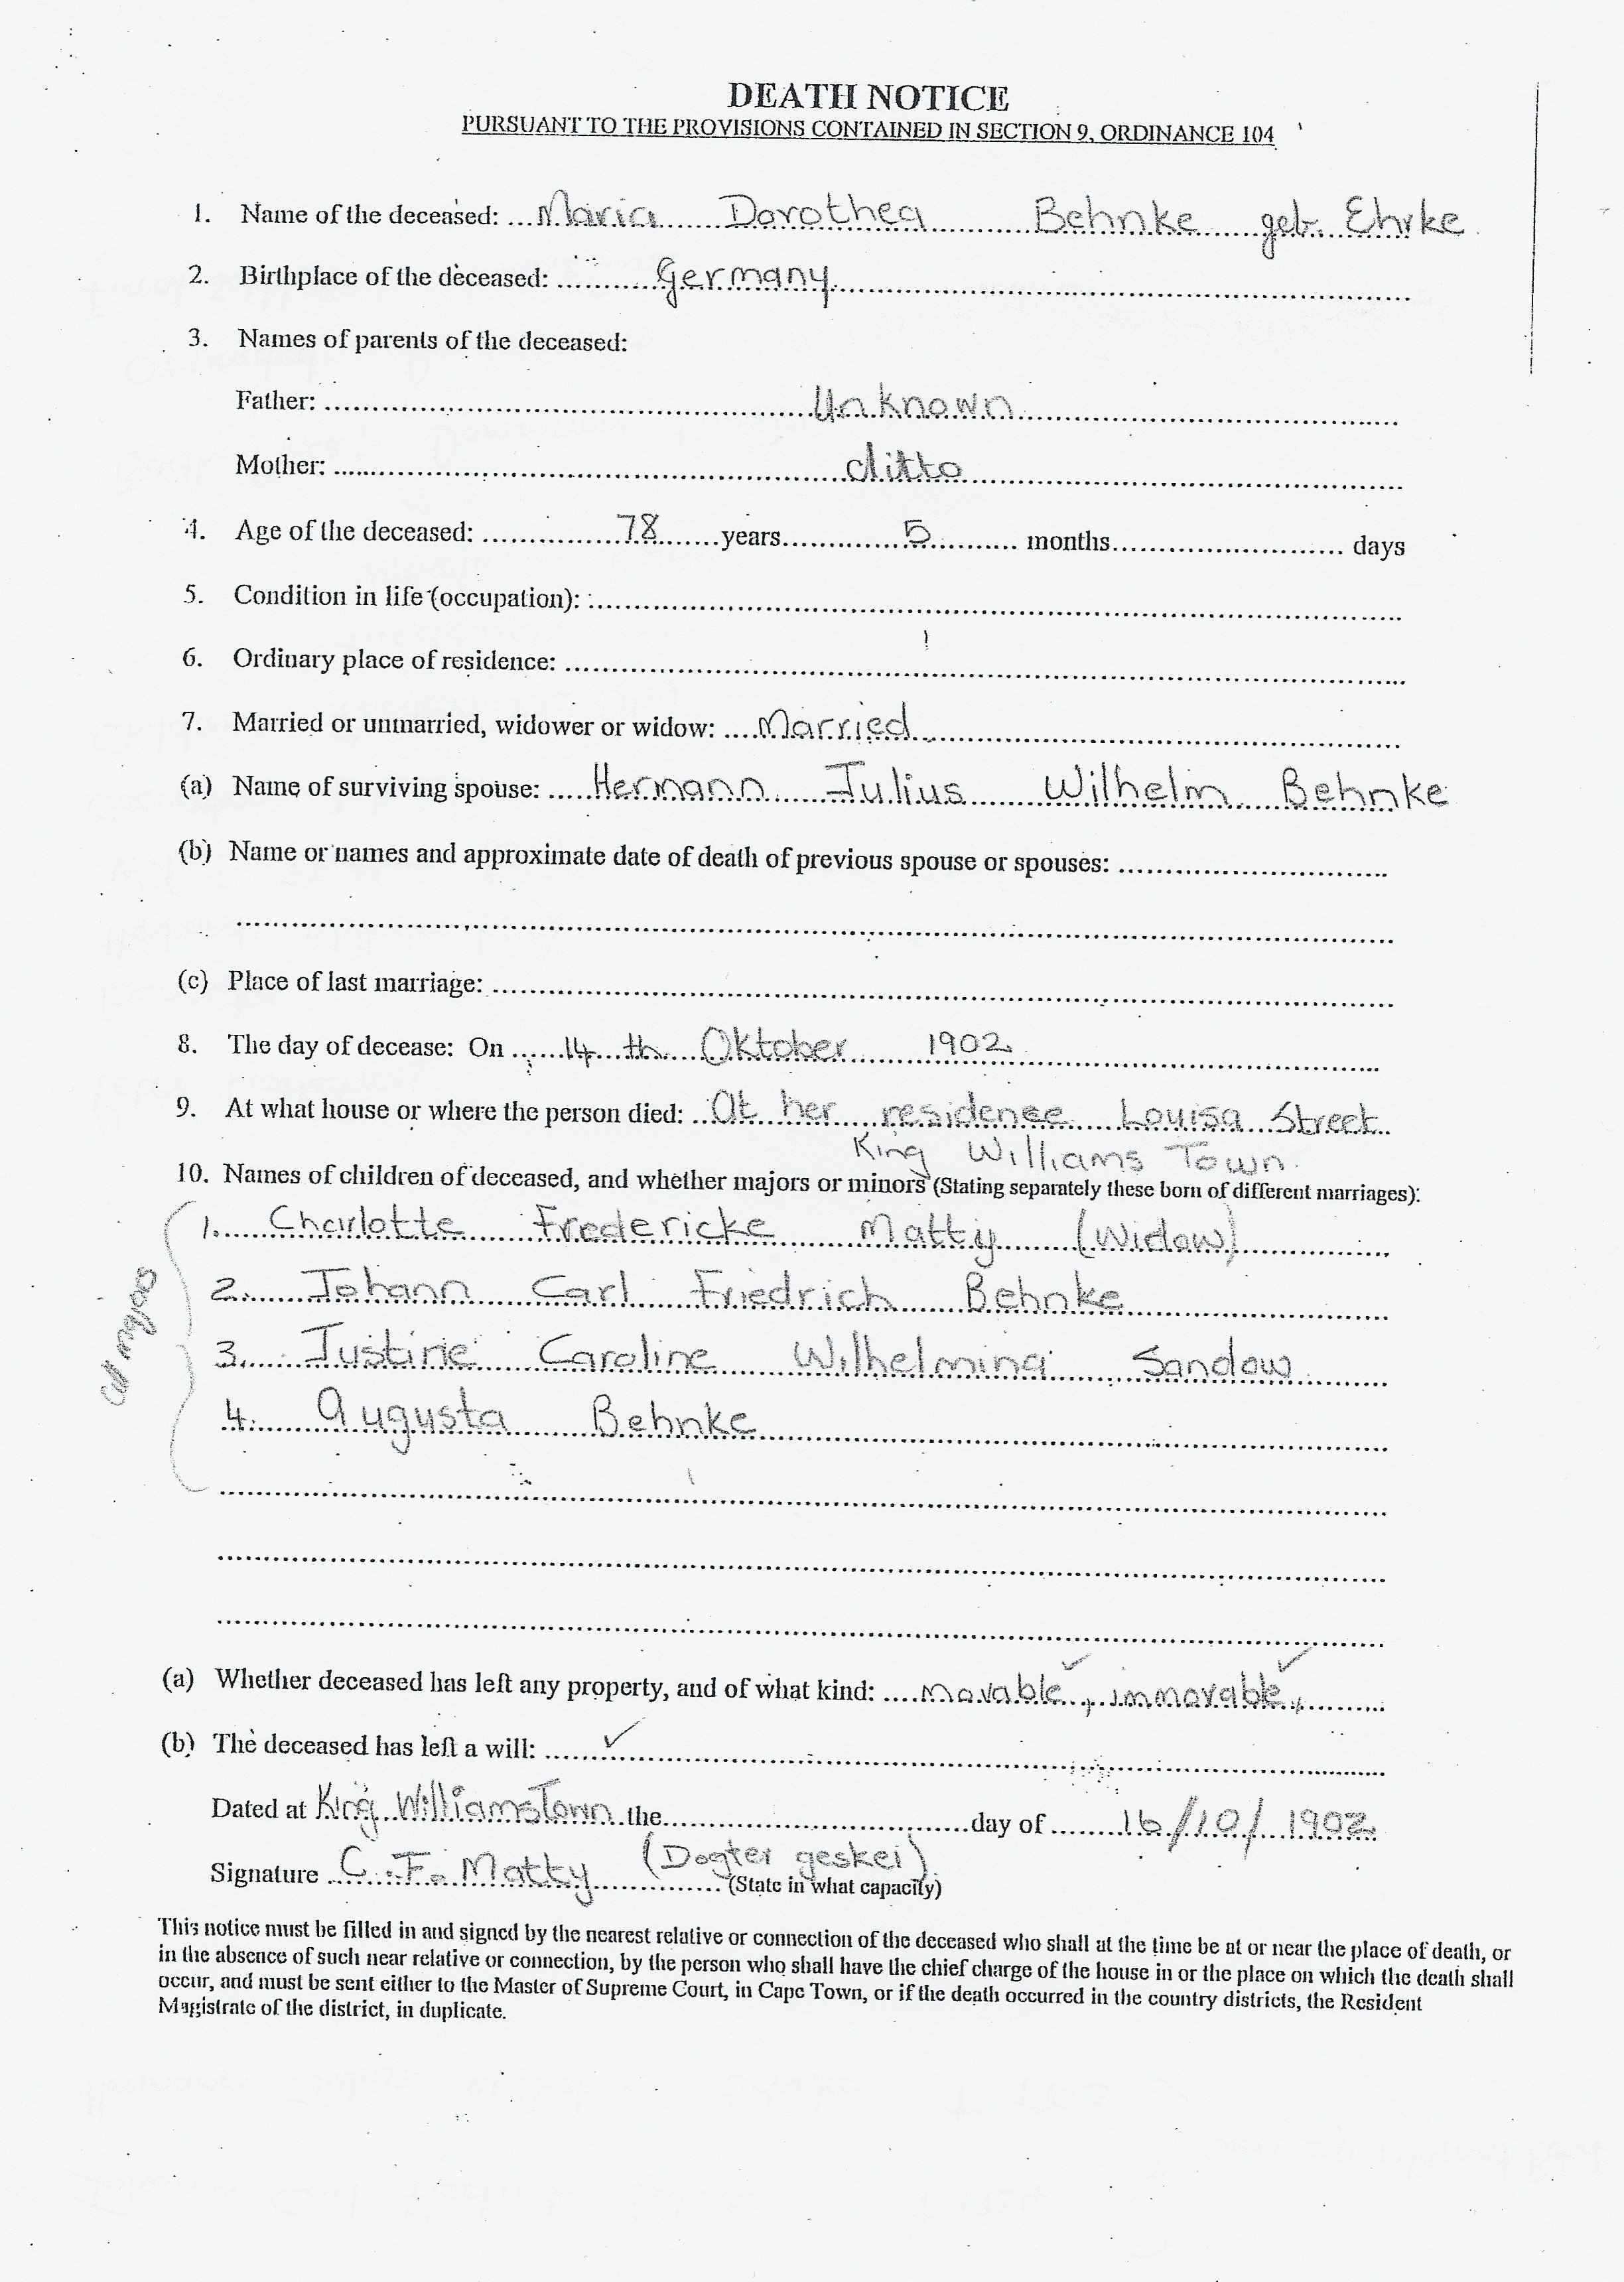 DEATH NOTICE
PURSUANT TO THE PROVISIONS CONTAINED IN SECTION 9, ORDINANCE 104
1. Name of the deceased: Maria Dorothea Behnke geb. Ehrke
2. Birthplace of the deceased: Germany
3. Names of parents of the deceased:
Father: Unknown
Mother: ditto
4. Age of the deceased: 78 years 5 months days
5. Condition in life (occupation):
6. Ordinary place of residence:
7. Married or unmarried, widower or widow: Married
(a) Name of surviving spouse: Hermann Julius Wilhelm Behnke
(b) Name or names and approximate date of death of previous spouse or spouses:
(c) Place of last marriage:
8. The day of decease: On 14 th Oktober 1902
9. At what house or where the person died: At her residence Louisa Street
King Williams Town
10. Names of children of deceased, and whether majors or minors (Stating separately these born of different marriages):
1. Charlotte Fredericke Matty (Widow)
2. Johann Carl Friedrich Behnke
3. Justine Caroline Wilhelmina Sandow
4. Augusta Behnke
all majors
(a) Whether deceased has left any property, and of what kind: movable ✓, immovable ✓,
(b) The deceased has left a will: ✓
Dated at King WilliamsTown the day of 16/10/1902
Signature C. F. Matty (Dogter geskei)
(State in what capacity)
This notice must be filled in and signed by the nearest relative or connection of the deceased who shall at the time be at or near the place of death, or
in the absence of such near relative or connection, by the person who shall have the chief charge of the house in or the place on which the death shall
occur, and must be sent either to the Master of Supreme Court, in Cape Town, or if the death occurred in the country districts, the Resident
Magistrate of the district, in duplicate.